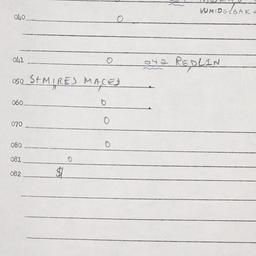 040 0
041 0 042 REDLIN
050 STMIRES MACES
060 0
070 0
080 0
081 0
082